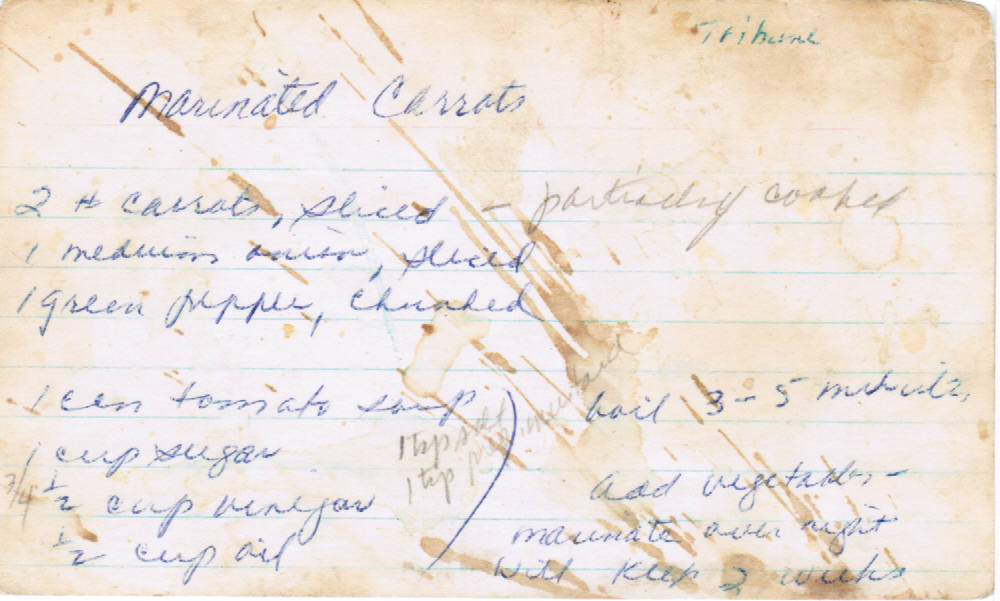 Tribune
Marinated Carrots
2 # carrots, sliced - partially cooked
1 medium onion, sliced
1 green pepper, chunked
1 can tomato soup
1 cup sugar
3/4 1/2 cup vinegar
1/2 cup oil
1 tsp salt
1 tsp prep. mustard
boil 3-5 minutes,
add vegetables -
marinate over night
Will keep 2 weeks